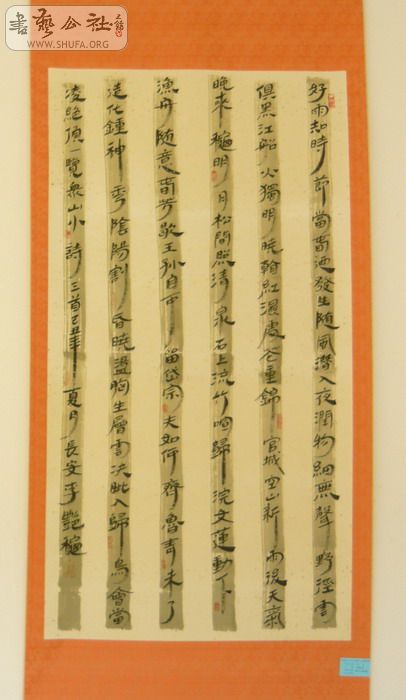 書藝公社
WWW.SHUFA.ORG
好雨知時節當春迺發生隨風潛入夜潤物細無聲野徑雲
俱黑江船火獨明曉看紅濕處花重錦官城空山新雨後天氣
晚來龝明月松間照清泉石上流竹喧歸浣女蓮動下
漁舟隨意春芳歇王孫自可留岱宗夫如何齊魯青未了
造化鍾神秀陰陽割昏曉盪胸生層雲決眥入歸鳥會當
凌絕頂一覽衆山小詩三首己丑年夏月長安李艷龝